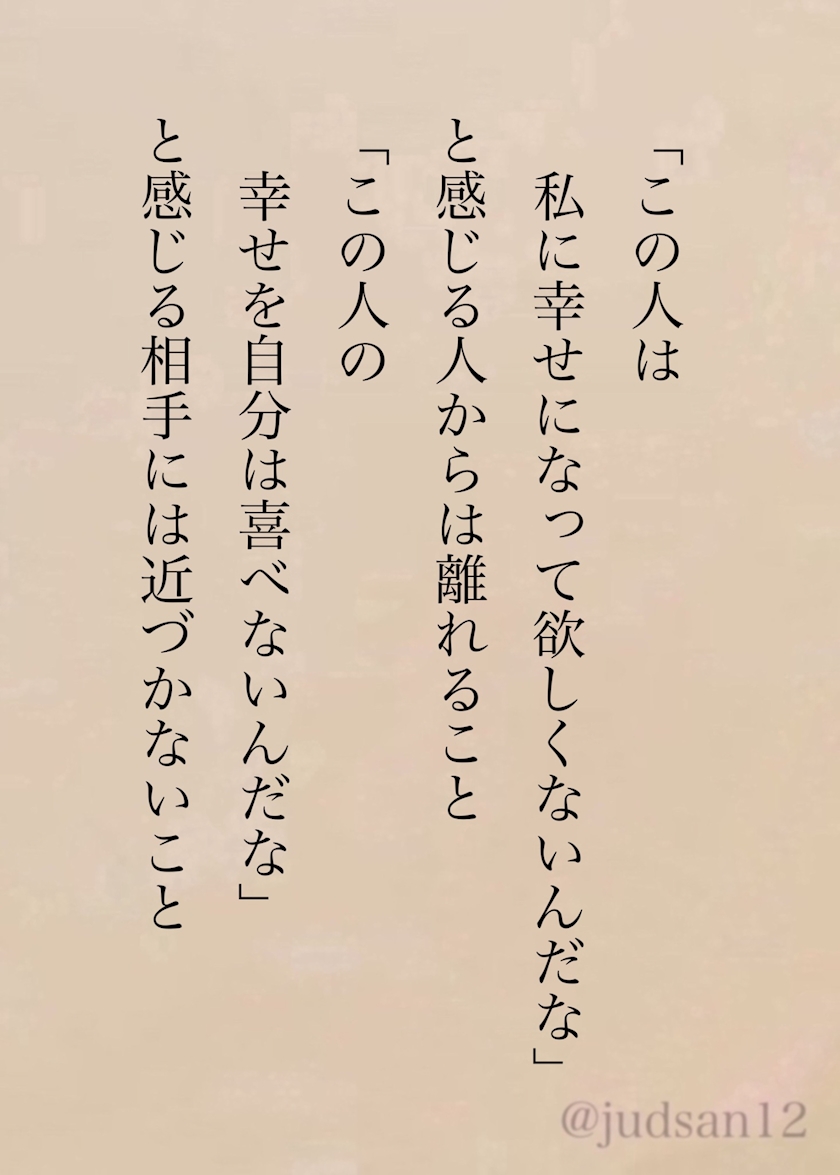 「この人は
私に幸せになって欲しくないんだな」
と感じる人からは離れること
「この人の
幸せを自分は喜べないんだな」
と感じる相手には近づかないこと
@judsan12